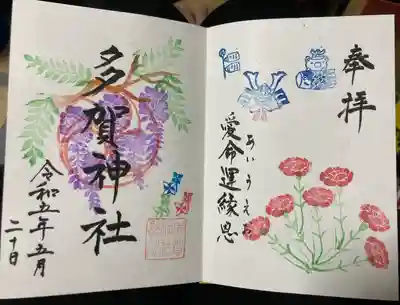 奉拝
愛命運縁恩
あいうえお
多賀神社
令和五年五月
二十日